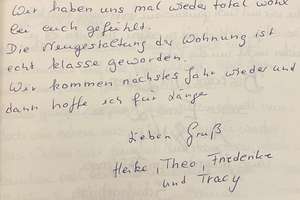 Wir haben uns mal wieder total wohl
bei euch gefühlt.
Die Neugestaltung der Wohnung ist
echt klasse geworden.
Wir kommen nächstes Jahr wieder und
dann hoffe ich für länge
Lieben Gruß
Heike, Theo, Friederike
und Tracy